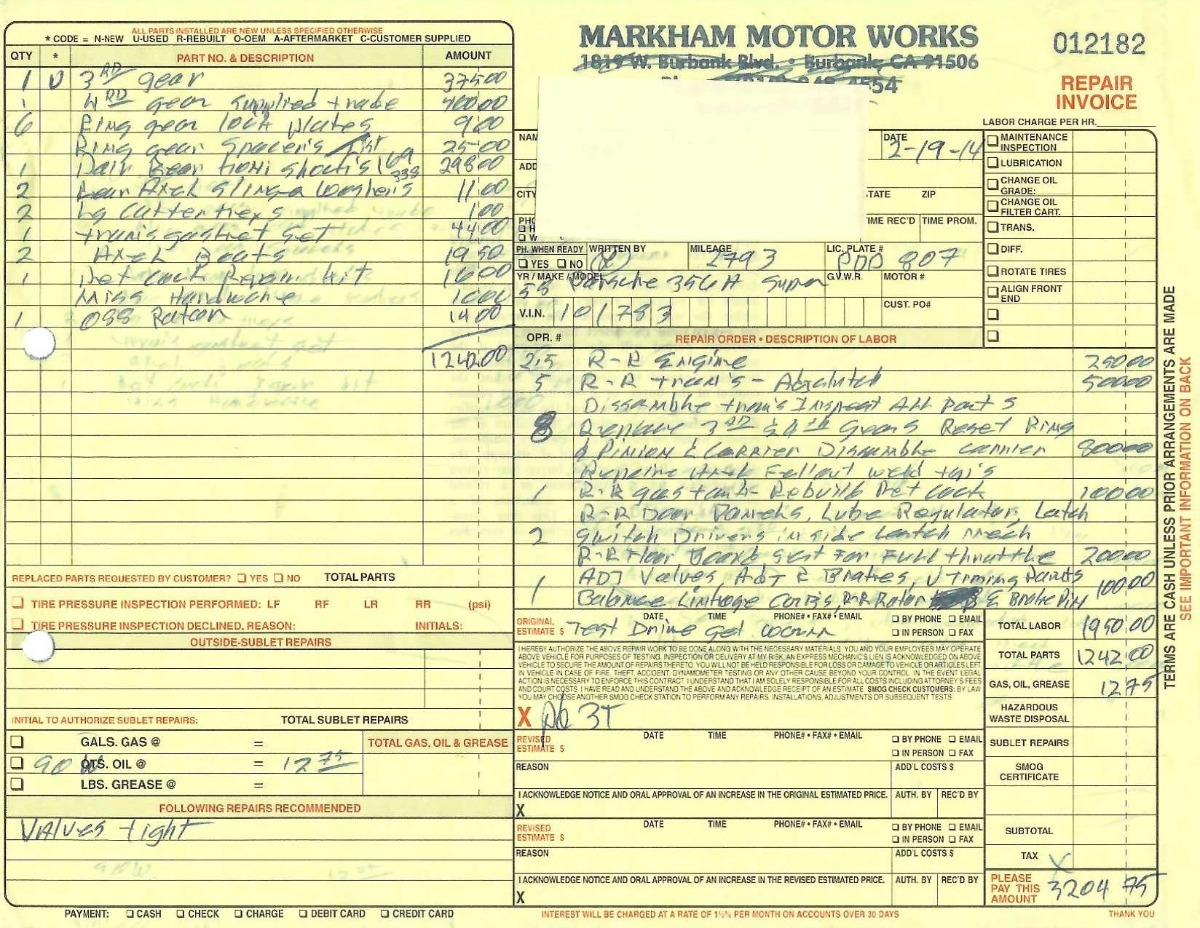 ALL PARTS INSTALLED ARE NEW UNLESS SPECIFIED OTHERWISE
* CODE = N-NEW U-USED R-REBUILT O-OEM A-AFTERMARKET C-CUSTOMER SUPPLIED
QTY * PART NO. & DESCRIPTION AMOUNT
1 U 3RD gear 375.00
1 4RD gear supplied trade 400.00
6 Ring gear lock plates 9.00
Ring gear Spacer's 25.00
1 298.00
2 11.00
2 1.00
1 trans gasket set 44.00
2 Axel Boots 19.50
1 Pet Cock Repair Kit 16.00
Miss Hardware 10.00
1 14.00
1242.00
REPLACED PARTS REQUESTED BY CUSTOMER? YES NO TOTAL PARTS
TIRE PRESSURE INSPECTION PERFORMED: LF RF LR RR (psi)
TIRE PRESSURE INSPECTION DECLINED, REASON: INITIALS:
OUTSIDE-SUBLET REPAIRS
INITIAL TO AUTHORIZE SUBLET REPAIRS: TOTAL SUBLET REPAIRS
GALS. GAS @ = TOTAL GAS, OIL & GREASE
90W QTS. OIL @ = 12 75
LBS. GREASE @ =
FOLLOWING REPAIRS RECOMMENDED
Valves tight
PAYMENT: CASH CHECK CHARGE DEBIT CARD CREDIT CARD
MARKHAM MOTOR WORKS
1819 W. Burbank Blvd. • Burbank, CA 91506
012182
REPAIR INVOICE
LABOR CHARGE PER HR.
DATE 2-19-14
STATE ZIP
TIME REC'D TIME PROM.
PH. WHEN READY YES NO WRITTEN BY MILEAGE 2793 LIC. PLATE # PDD 907
YR / MAKE / MODEL 58 Porsche 356A Super G.V.W.R. MOTOR #
V.I.N. 101783 CUST. PO#
MAINTENANCE INSPECTION
LUBRICATION
CHANGE OIL GRADE:
CHANGE OIL FILTER CART.
TRANS.
DIFF.
ROTATE TIRES
ALIGN FRONT END
OPR. # REPAIR ORDER • DESCRIPTION OF LABOR
2.5 R-R Engine 250.00
5 R-R tran's - 500.00
Dissamble tran's Inspect All Parts
8 Replace 3RD & 4th Gears Reset Ring
& Pinion & Carrier Dissamble Carrier 800.00
1 R-R gas tank - Rebuild Pet Cock 100.00
R-R Door Panels, Lube Regulator, Latch
2 Switch Drivers inside Latch Mech
R-R Floor Board set For Full throttle 200.00
ADJ Valves, ADJ E Brakes, Timing Points
1 Balance Linkage Carbs, R-R Rotor & E Brake Pin 100.00
ORIGINAL ESTIMATE $ DATE TIME PHONE# • FAX# • EMAIL BY PHONE EMAIL IN PERSON FAX
Test Drive
I HEREBY AUTHORIZE THE ABOVE REPAIR WORK TO BE DONE ALONG WITH THE NECESSARY MATERIALS. YOU AND YOUR EMPLOYEES MAY OPERATE
ABOVE VEHICLE FOR PURPOSES OF TESTING, INSPECTION OR DELIVERY AT MY RISK. AN EXPRESS MECHANIC'S LIEN IS ACKNOWLEDGED ON ABOVE
VEHICLE TO SECURE THE AMOUNT OF REPAIRS THERETO. YOU WILL NOT BE HELD RESPONSIBLE FOR LOSS OR DAMAGE TO VEHICLE OR ARTICLES LEFT
IN VEHICLE IN CASE OF FIRE, THEFT, ACCIDENT, DYNAMOMETER TESTING OR ANY OTHER CAUSE BEYOND YOUR CONTROL.
X
REVISED ESTIMATE $ DATE TIME PHONE# • FAX# • EMAIL BY PHONE EMAIL IN PERSON FAX
REASON ADD'L COSTS $
I ACKNOWLEDGE NOTICE AND ORAL APPROVAL OF AN INCREASE IN THE ORIGINAL ESTIMATED PRICE. AUTH. BY REC'D BY
X
REVISED ESTIMATE $ DATE TIME PHONE# • FAX# • EMAIL BY PHONE EMAIL IN PERSON FAX
REASON ADD'L COSTS $
I ACKNOWLEDGE NOTICE AND ORAL APPROVAL OF AN INCREASE IN THE REVISED ESTIMATED PRICE. AUTH. BY REC'D BY
X
INTEREST WILL BE CHARGED AT A RATE OF 1½% PER MONTH ON ACCOUNTS OVER 30 DAYS
TOTAL LABOR 1950.00
TOTAL PARTS 1242.00
GAS, OIL, GREASE 12 75
HAZARDOUS WASTE DISPOSAL
SUBLET REPAIRS
SMOG CERTIFICATE
SUBTOTAL
TAX X
PLEASE PAY THIS AMOUNT 3204 75
THANK YOU
TERMS ARE CASH UNLESS PRIOR ARRANGEMENTS ARE MADE
SEE IMPORTANT INFORMATION ON BACK